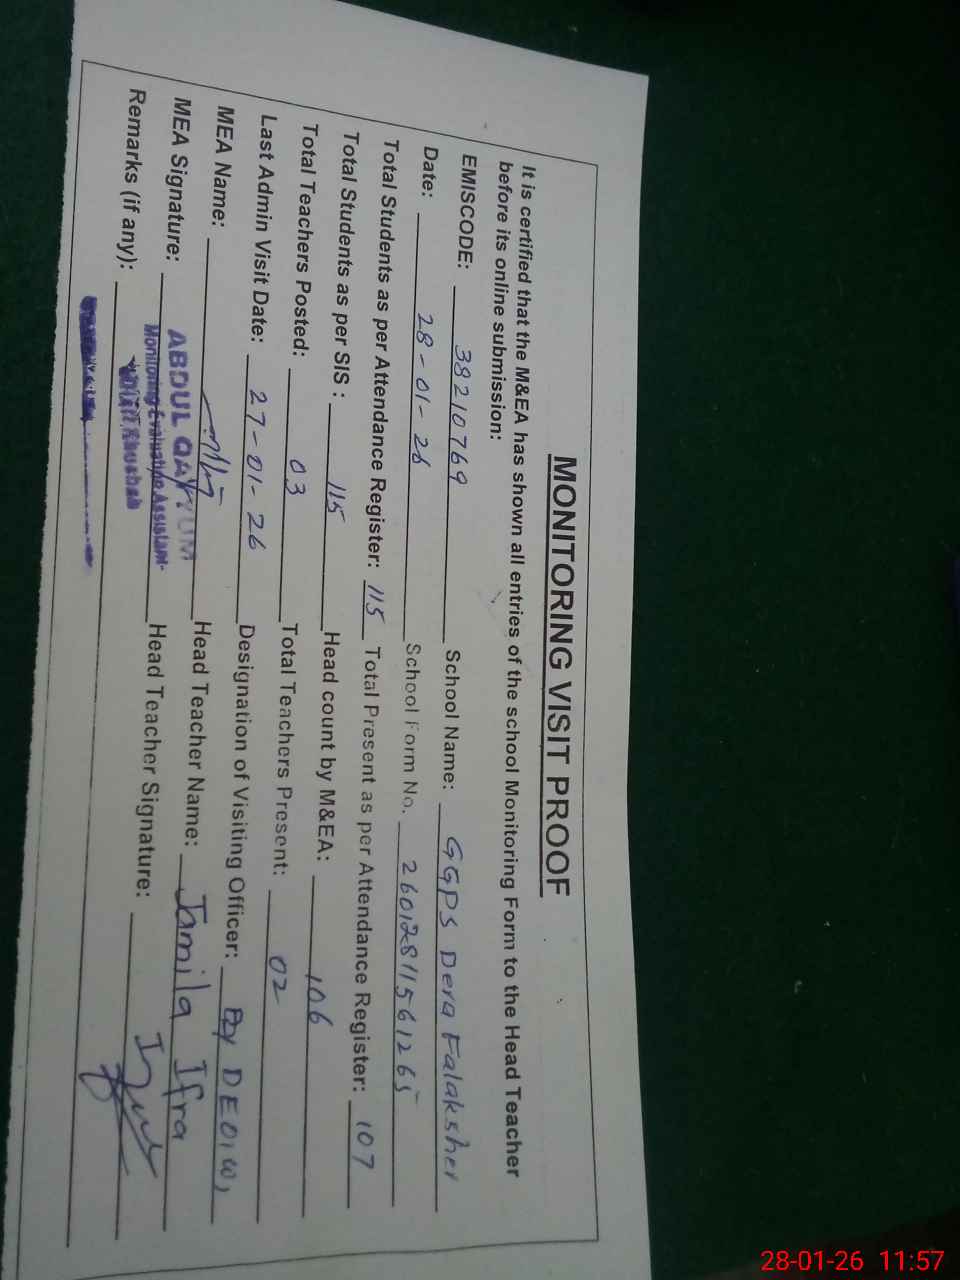 MONITORING VISIT PROOF
It is certified that the M&EA has shown all entries of the school Monitoring Form to the Head Teacher
before its online submission:
EMISCODE: 38210769 School Name: GGPS Dera Falaksher
Date: 28-01-26 School Form No. 26012811561265
Total Students as per Attendance Register: 115 Total Present as per Attendance Register: 107
Total Students as per SIS : 115 Head count by M&EA: 106
Total Teachers Posted: 03 Total Teachers Present: 02
Last Admin Visit Date: 27-01-26 Designation of Visiting Officer: Dy DEO(W)
MEA Name: Head Teacher Name: Jamila Ifra
MEA Signature: ABDUL QAYYUM Head Teacher Signature:
Monitoring Evaluation Assistant
Remarks (if any): Khushab
28-01-26 11:57